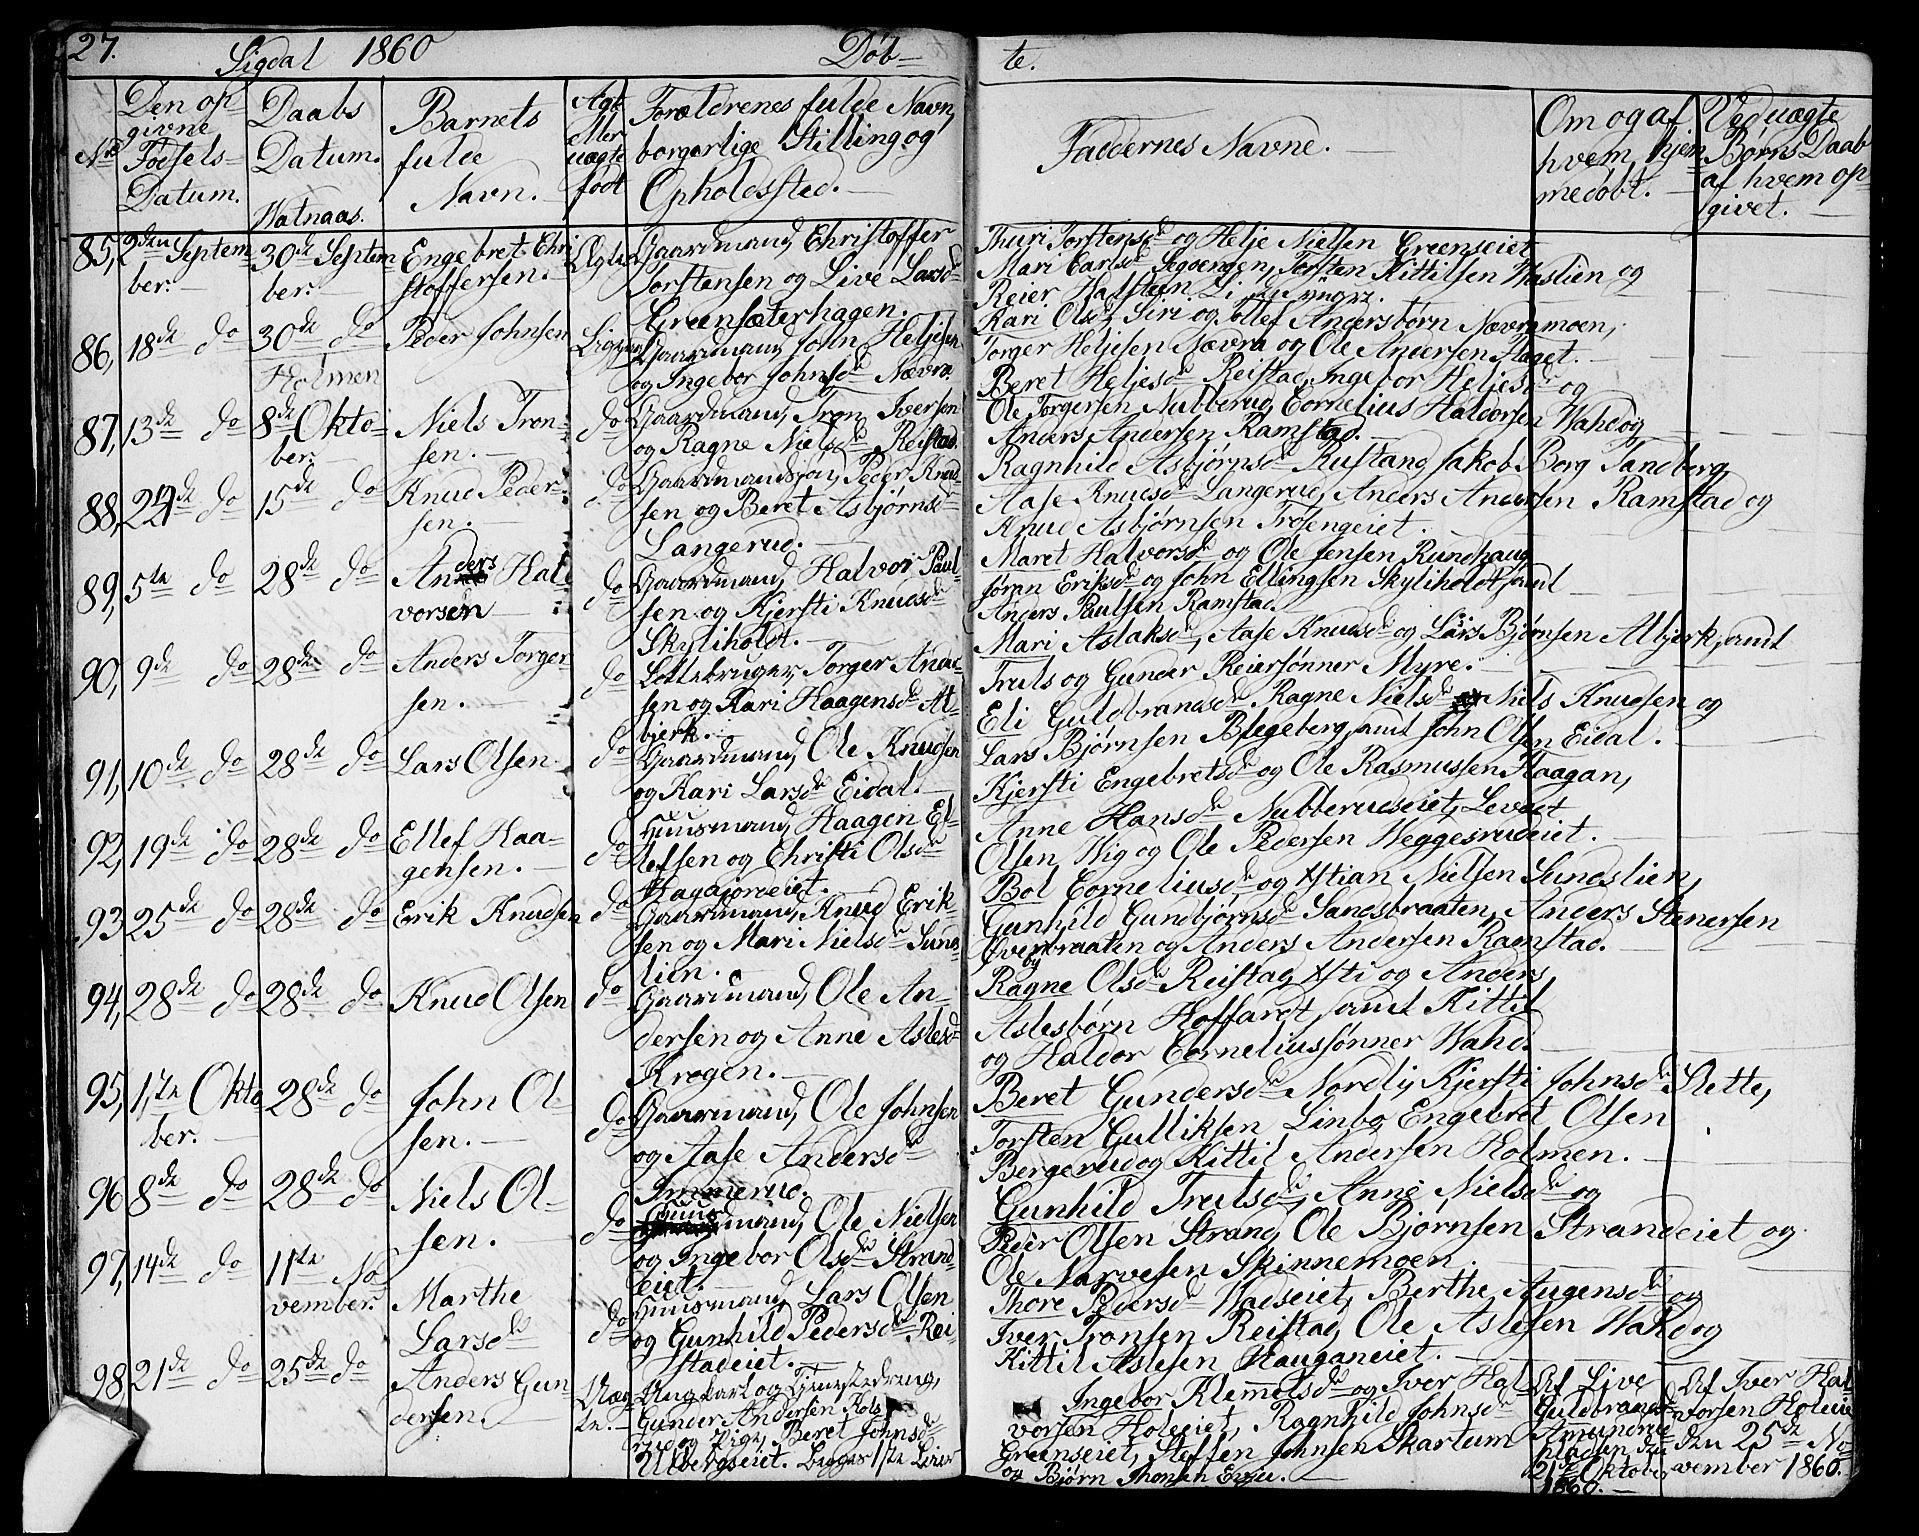 27.
Sigdal 1860
Døb-
te.
No
Den op
givne
Fødsels-
Datum.
Daabs
Datum.
Barnets
fulde
Navn.
Ægte
eller
uægte
født
Forældrenes fulde Navn,
borgerlige Stilling og
Opholdssted.
Faddernes Navne.
Om og af
hvem hjem
medøbt.
Ved uægte
Børns Daab
af hvem op
givet.
85, 2den Septem
ber.
30de Septem
ber.
Engebret Chri
stoffersen.
Ægte
Gaardmand, Christoffer
Torstensen og Live Larsd
Greensæterhagen.
Thuri Torstensd og Helje Nielsen Greenseiet,
Mari Carlsd Segoengen, Torsten Kittilsen Haslien og
Reier Halstein
86, 18de do
30de do
Holmen
Peder Johnsen
Gaardmand, John Heljesen
og Ingebor Johnsd Nævra.
Kari Olsd, Siri og Ellef Andersbørn Nævramoen,
Torger Heljesen Nævra og Ole Andersen Flaget.
87, 13de do
8de Okto
ber.
Niels Tron-
sen.
do
Gaardmand, Tron Iversen
og Ragne Nielsd Reistad.
Beret Heljesd Reistad, Ingebor Heljesd og
Ole Torgersen Nubberud, Cornelius Haldorsen Wahd og
Anders Andersen Ramstad.
88, 22de do
15de do
Knud Peder-
sen.
do
Gaardmandsson, Peder Knud
sen og Beret Asbjørnsd
Langerud.
Ragnhild Asbjørnsd Rustand, Jakob Borg Tandberg,
Aase Knudsd Langerud, Anders Andersen Ramstad og
Knud Asbjørnsen Frøsengeiet.
89, 5te do
28de do
Anders Hal-
vorsen
do
Gaardmand, Halvor Paul-
sen og Kjersti Knudsd
Skyliholdt.
Maret Halvorsd og Ole Jensen Rundhaug,
Jøran Eriksd og John Ellingsen Skyliholdt samt
Anders Paulsen Ramstad.
90, 9de do
28de do
Anders Torger
sen.
do
Lottebruger, Torger Ander-
sen og Kari Haagensd Al-
bjerk.
Mari Aslaksd, Aase Knudsd og Lars Bjørnsen Albjerk, samt
Truls og Gunder Reiersønner Myre.
91, 10de do
28de do
Lars Olsen
do
Gaardmand, Ole Knudsen
og Kari Larsd Eidal.
Eli Guldbrandsd, Ragne Nielsd, Niels Knudsen og
Lars Bjørnsen Blegeberg, samt John Olsen Eidal.
92, 19de do
28de do
Ellef Haa-
gensen.
do
Huusmand, Haagen El-
lefsen og Christi Olsd
Hagajordeiet.
Kjersti Engebretsd og Ole Rasmussen Haagan,
Anne Hansd Nubberudseiet, Levert
Olsen Wig og Ole Pedersen Heggesrudeiet.
93 25de do
28de do
Erik Knudsen
do
Gaardmand, Knud Erik-
sen og Mari Nielsd Sund
lien.
Bol Corneliusd og Xstian Nielsen Sundslien,
Gunhild Gundbjørnsd Sandsbraaten, Anders Stenersen
Øverbybraaten og Anders Andersen Ramstad.
94, 28de do
28de do
Knud Olsen
do
Gaardmand, Ole An-
dersen og Anne Aslesd
Krogen.
Ragne Olsd Reistad, Xsti og Anders
Aslesbørn Hoffaret, samt Kittil
og Haldor Corneliussønner Wahd.
95, 1ste Okto
ber.
28de do
John Ol-
sen.
do
Gaardmand, Ole Johnsen
og Aase Andersd
Beret Gundersd Nordli, Kjersti Johnsd Slette,
Torsten Gulliksen Linbo, Engebret Olsen
Bergerud og Kittil Andersen Holmen.
96 8de do
28de do
Niels Ol-
sen.
do
Huusmand, Ole Nielsen
og Ingebor Olsd Strand-
eiet.
Gunhild Trulsd, Anne Nielsd og
Peder Olsen Strand, Ole Bjørnsen Strandeiet og
Ole Narvesen Skinnemoen.
97, 14de do
11te No
vember.
Marthe
Larsd
do
Huusmand, Lars Olsen
og Gunhild Pedersd Rei-
stadeiet.
Thore Pedersd Wadseiet, Berthe Augensd og
Iver Tronsen Reistad, Ole Aslesen Wahd og
Kittil Aslesen Hauganeiet.
98 21de do
25de do
Anders Gun
dersen.
Uæg
te.
Ungkarl og
Gunder Andersen Kols
rud og Pige, Beret Johnsd
Ulbergseiet. Begges 1ste Leier
Ingebor Klemmetsd og Iver Hal
vorsen Holeeiet, Ragnhild Johnsd
Greenseiet, Steffen Johnsen Skartum
og Bjørn Thomasen
Af Live
Guldbrandsd
21de Oktober
1860.
Af Iver Hal
vorsen Holeeie
den 25de No
vember 1860.